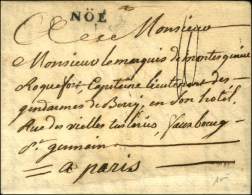 NOË
A Monsieur
Monsieur le marquis de montesquiou
Roquefort Capitaine lieutenant des
gendarmes de Berry, en son hôtel,
Rue des vielles tuileries, fauxbourg
St. germain
a paris